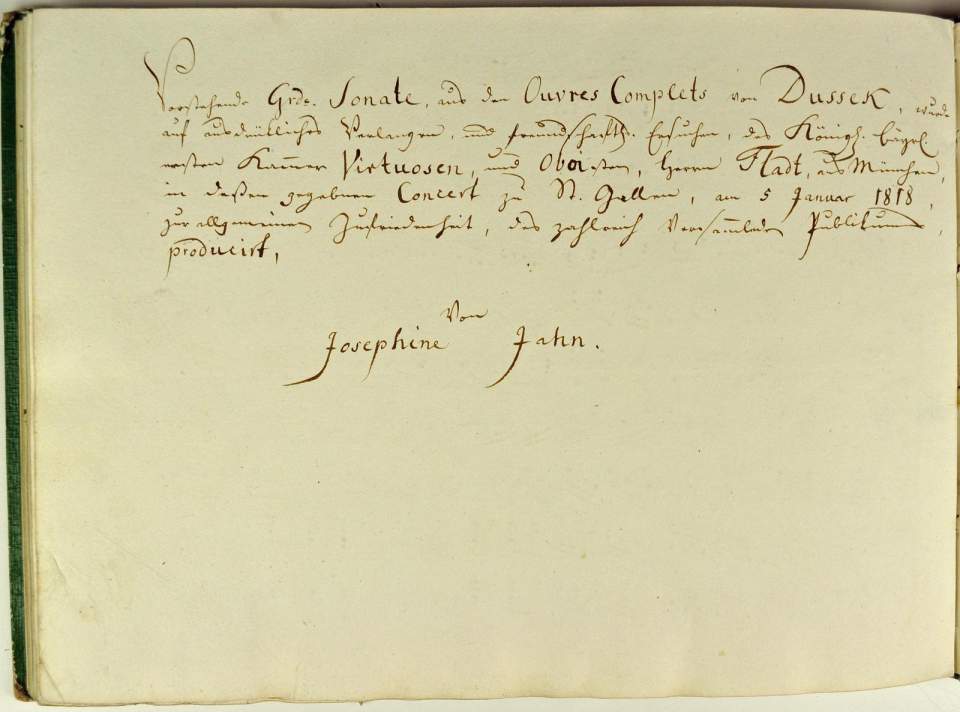 Vorstehende Grde. Sonate, aus den Ouvres Complets von Dussek, wurde
auf ausdrükliches Verlangen, und freundschaftl. Ersuchen, des Königl. bayrl.
ersten Kam̄er Virtuosen, und Oboisten, Herrn Fladt, aus München,
in deßen gegebnen Concert zu St. Gallen, am 5 Januar 1818,
zur allgemeinen Zufriedenheit, des zahlreich Versam̄leten Publikums,
producirt,
Von
Josephine Jahn.